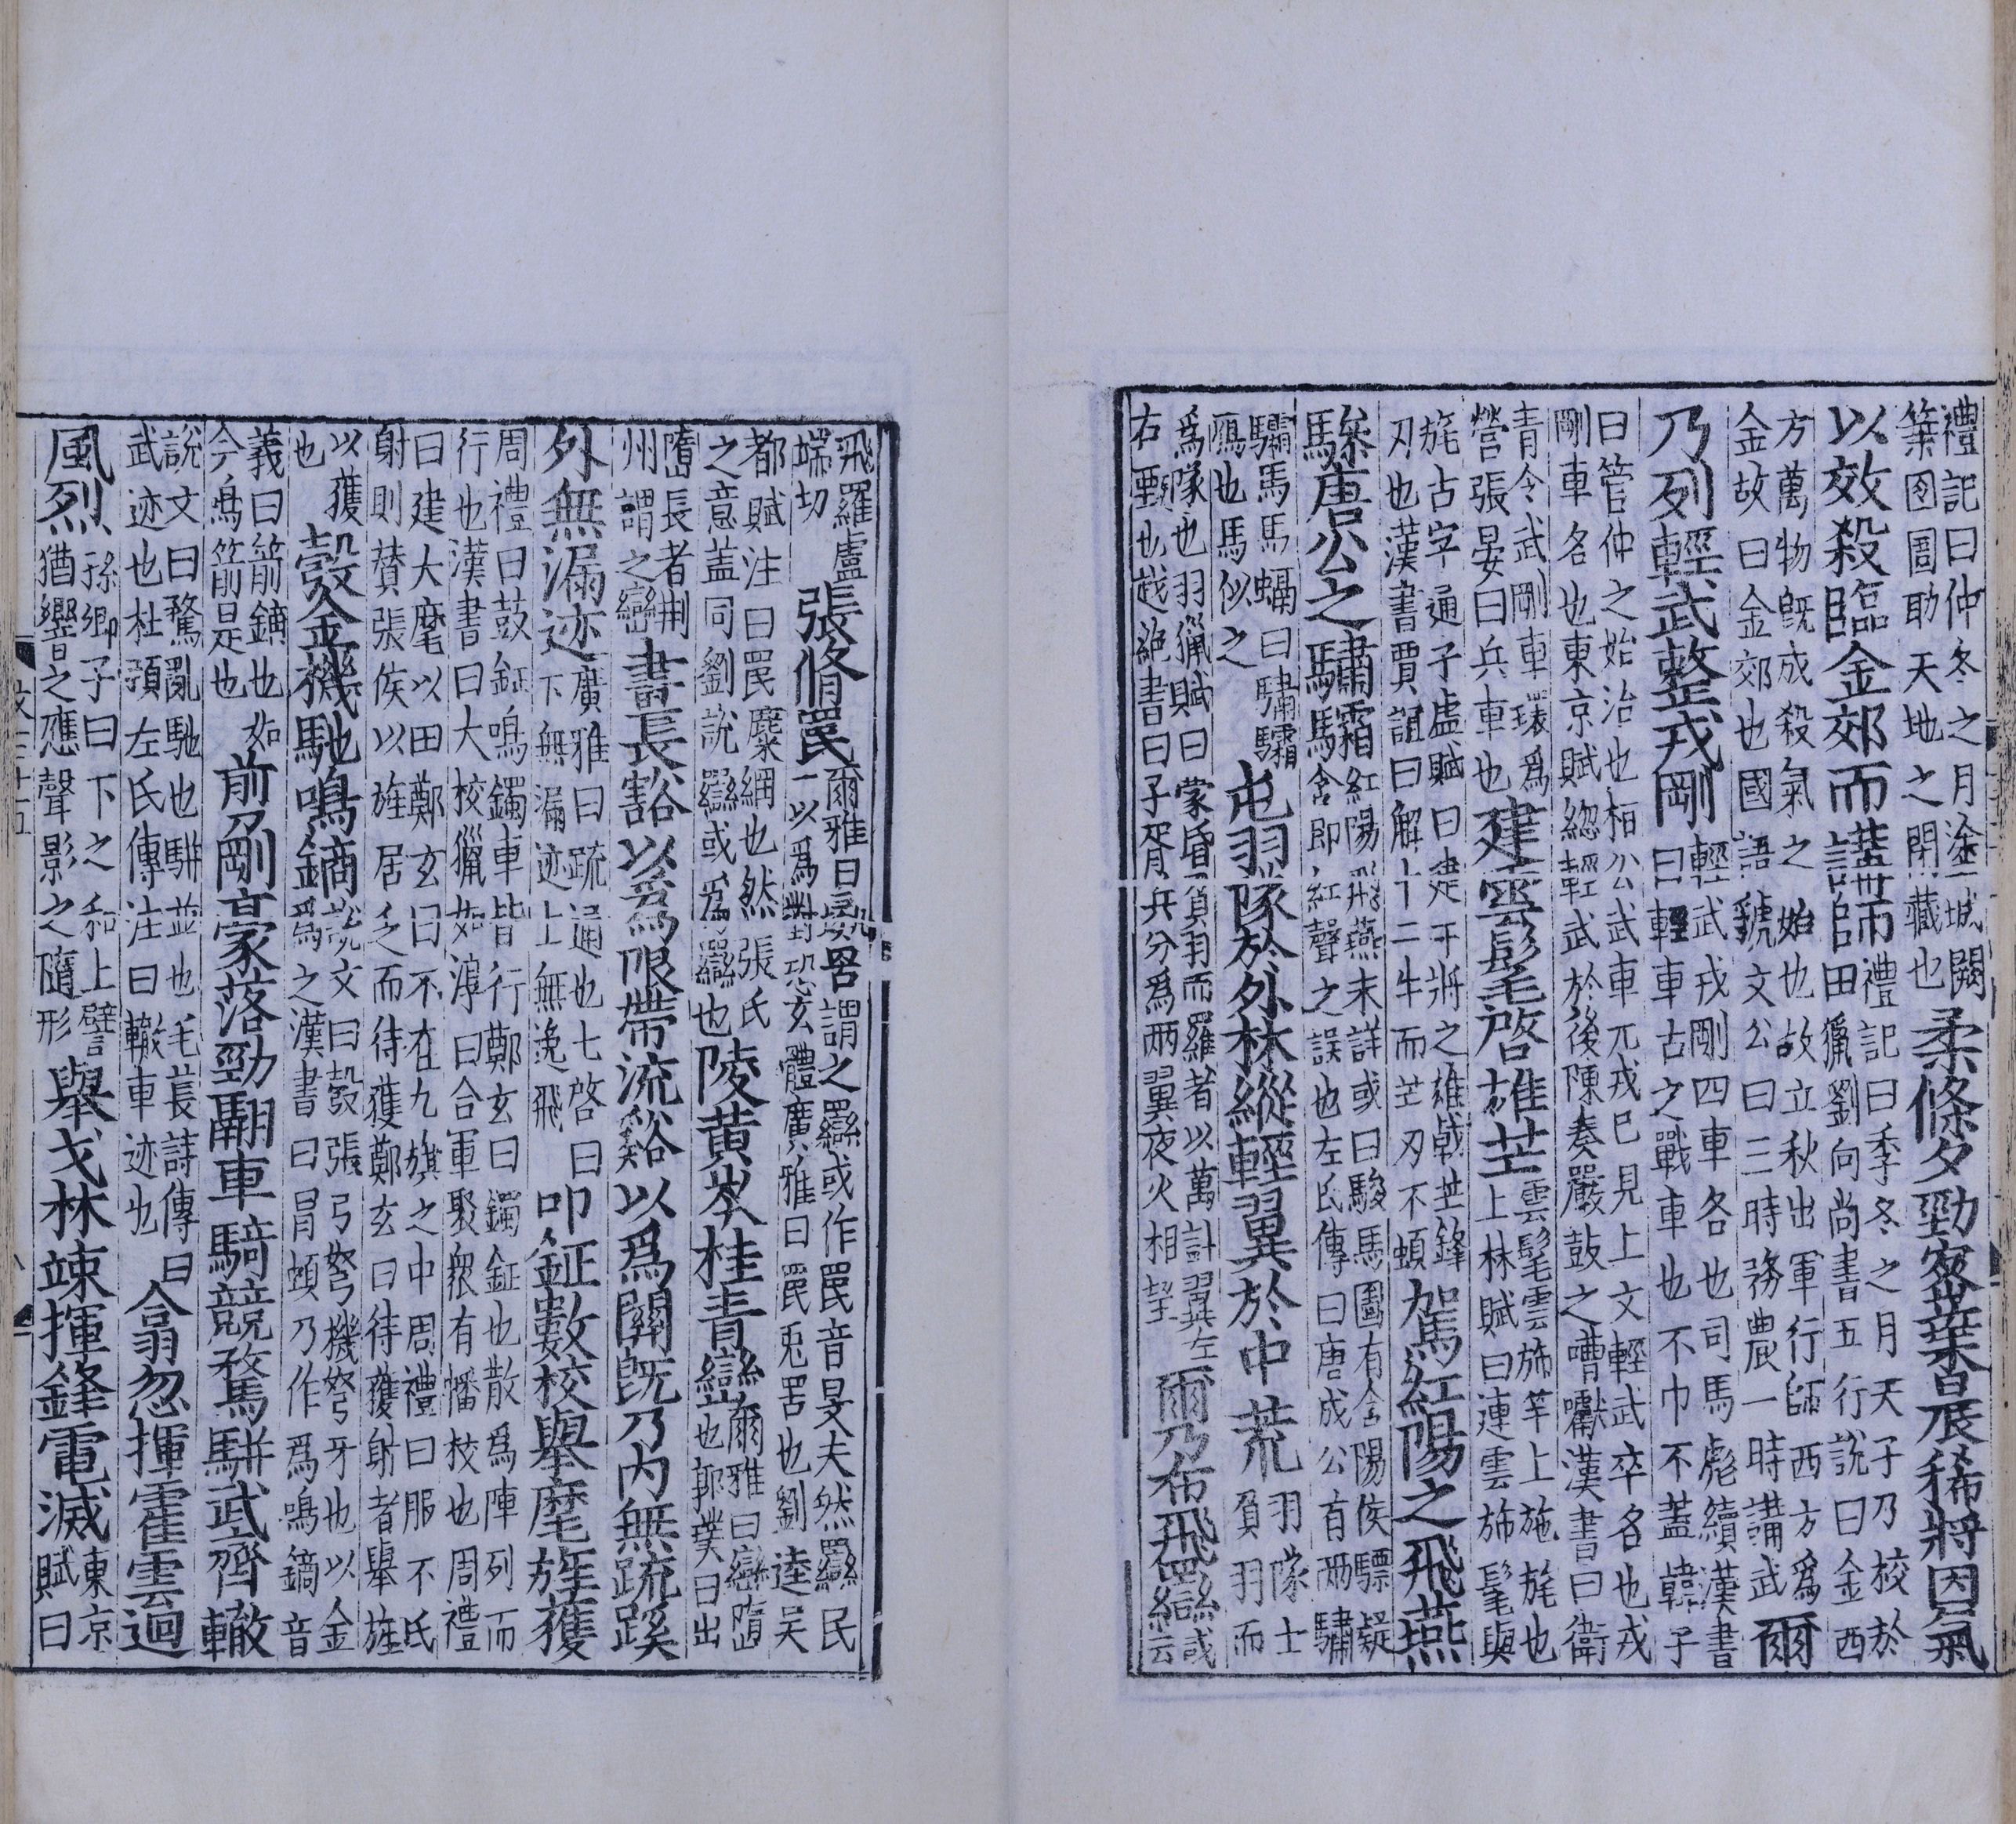 禮記曰仲冬之月塗城闕築囹圄助天地之閉藏也柔條夕勁密葉晨稀將因氣
以效殺臨金郊而講師禮記曰季冬之月天子乃校於田獵劉向尚書五行說曰金西
方萬物既成殺氣之始也故立秋出軍行師西方爲金故曰金郊也國語虢文公曰三時務農一時講武爾
乃列輕武整戎剛輕武戎剛四車各也司馬彪續漢書曰輕車古之戰車也不巾不蓋韓子
曰管仲之始治也桓公武車兀戎巳見上文輕武卒名也戎剛車名也東京賦緫輕武於後陳奏嚴鼓之嘈囐漢書曰衛
青令武剛車環爲營張晏曰兵車也建雲髦啓雄芒雲髦雲斾竿上施旄也上林賦曰連雲斾髦與
旄古字通子虛賦曰建干將之雄戟芒鋒刃也漢書賈誼曰解十二牛而芒刃不頓駕紅陽之飛燕
驂唐公之驌驦紅陽飛燕未詳或曰駿馬圖有含陽侯驃疑含即紅聲之誤也左氏傳曰唐成公有兩驌
驦馬馬螭曰驌驦鴈也馬似之屯羽隊於外林縱輕翼於中荒羽隊士負羽而
爲隊也羽獵賦曰蒙盾負羽而羅者以萬計翼左右甄也越絶書曰子胥兵分爲兩翼夜火相望爾乃布飛羉或云
飛羅盧端切張脩罠爾雅曰彘罟謂之羉或作罠音旻夫然羉民一以爲對恐玄體廣雅曰罠兎罟也劉逵吴
都賦注曰罠麋網也然張氏之意蓋同劉說羉或爲巒也陵黃岑挂青巒爾雅曰巒隨也郭璞曰出
隨長者荆州謂之巒畫長豁以爲限帶流谿以爲關旣乃内無疏蹊
外無漏迹廣雅曰疏通也七啓曰下無漏迹上無逸飛叩鉦數校舉麾旌獲
周禮曰鼓鉦鳴鐲車皆行鄭玄曰鐲鉦也散爲陣列而行也漢書曰大校獵如淳曰合軍聚衆有幡校也周禮
曰建大麾以田鄭玄曰不在九旗之中周禮曰服不氏射則贊張侯以旌居乏而待獲鄭玄曰待獲射者舉旌
以獲也彀金機馳鳴鏑說文曰彀張弓弩機弩牙也以金爲之漢書曰冒頓乃作爲鳴鏑音
義曰箭鏑也如今鳥箭是也前刃剛豪落勁翮車騎競騖駢武齊轍
說文曰騖亂馳也駢並也毛萇詩傳曰武迹也杜預左氏傳注曰轍車迹也翕忽揮霍雲迴
風烈孫卿子曰下之和上譬猶響之應聲影之隨形舉戈林竦揮鋒電滅東京賦曰